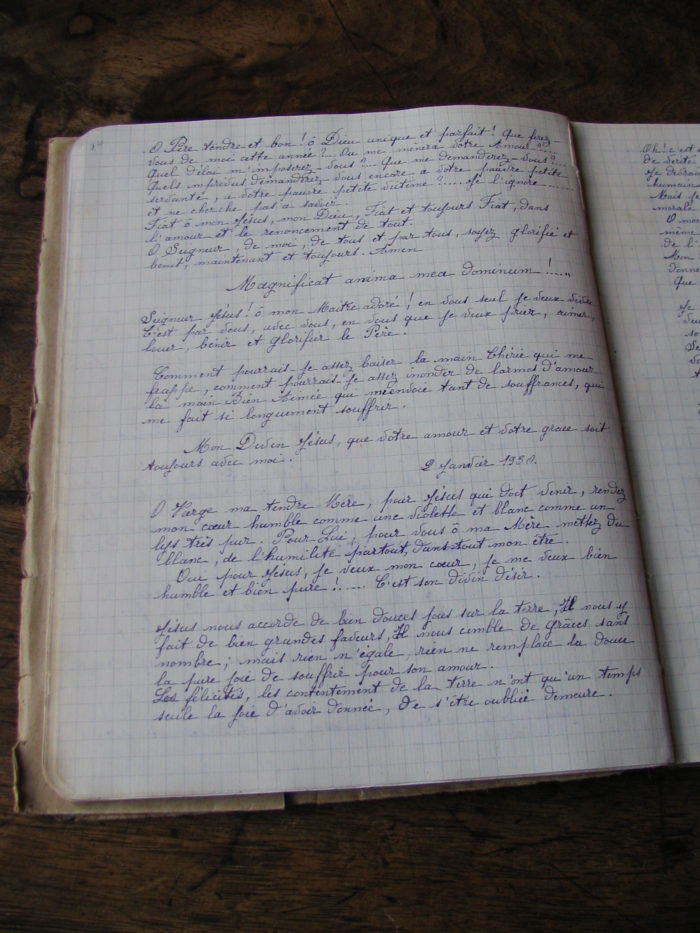 O Père tendre et bon ! ô Dieu unique et parfait ! Que ferez
vous de moi cette année ?.. Où me mènera votre Amour ?..
Quel délai m'imposerez-vous ?.. Que me demanderez-vous ?..
Quels imprévus demandrez vous encore à votre pauvre petite
servante, à votre pauvre petite victime ?.... Je l'ignore .....
et ne cherche pas à savoir.
Fiat ô mon Jésus, mon Dieu, Fiat et toujours Fiat, dans
l'amour et le renoncement de tout.
O Seigneur, de moi, de tous et par tous, soyez glorifié et
benit, maintenant et toujours. Amen
Magnificat anima mea dominum !.....
Seigneur Jésus ! ô mon Maître adoré ! en vous seul je veux vivre
C'est par vous, avec vous, en vous que je veux prier, aimer,
louer, benir et glorifier le Père.
Comment pourrais-je assez baiser la main Chérie qui me
frappe, comment pourrais-je assez inonder de larmes d'amour
la main Bien Aimée qui m'envoie tant de souffrances, qui
me fait si longuement souffrir.
Mon Divin Jésus, que votre amour et votre grace soit
toujours avec moi.
2 Janvier 1930.
O Vierge ma tendre Mère, pour Jésus qui doit venir, rendez
mon cœur humble comme une violette et blanc comme un
lys très pur. Pour Lui, pour vous ô ma Mère mettez du
blanc, de l'humilité partout, dans tout mon être.
Oui pour Jésus, je veux mon cœur, je me veux bien
humble et bien pure !..... C'est son divin désir.
Jésus nous accorde de bien douces joies sur la terre, Il nous y
fait de bien grandes faveurs, Il nous comble de grâces sans
nombre ; mais rien n'égale, rien ne remplace la douce
la pure joie de souffrir pour son amour.
Les félicités, les contentement de la terre n'ont qu'un temps
seule la joie d'avoir donnée, de s'être oubliée demeure.
Oh ! c'est
de vérité
Je devrais
humain
Mais je
morale
O m
même
de l'
donne
Que